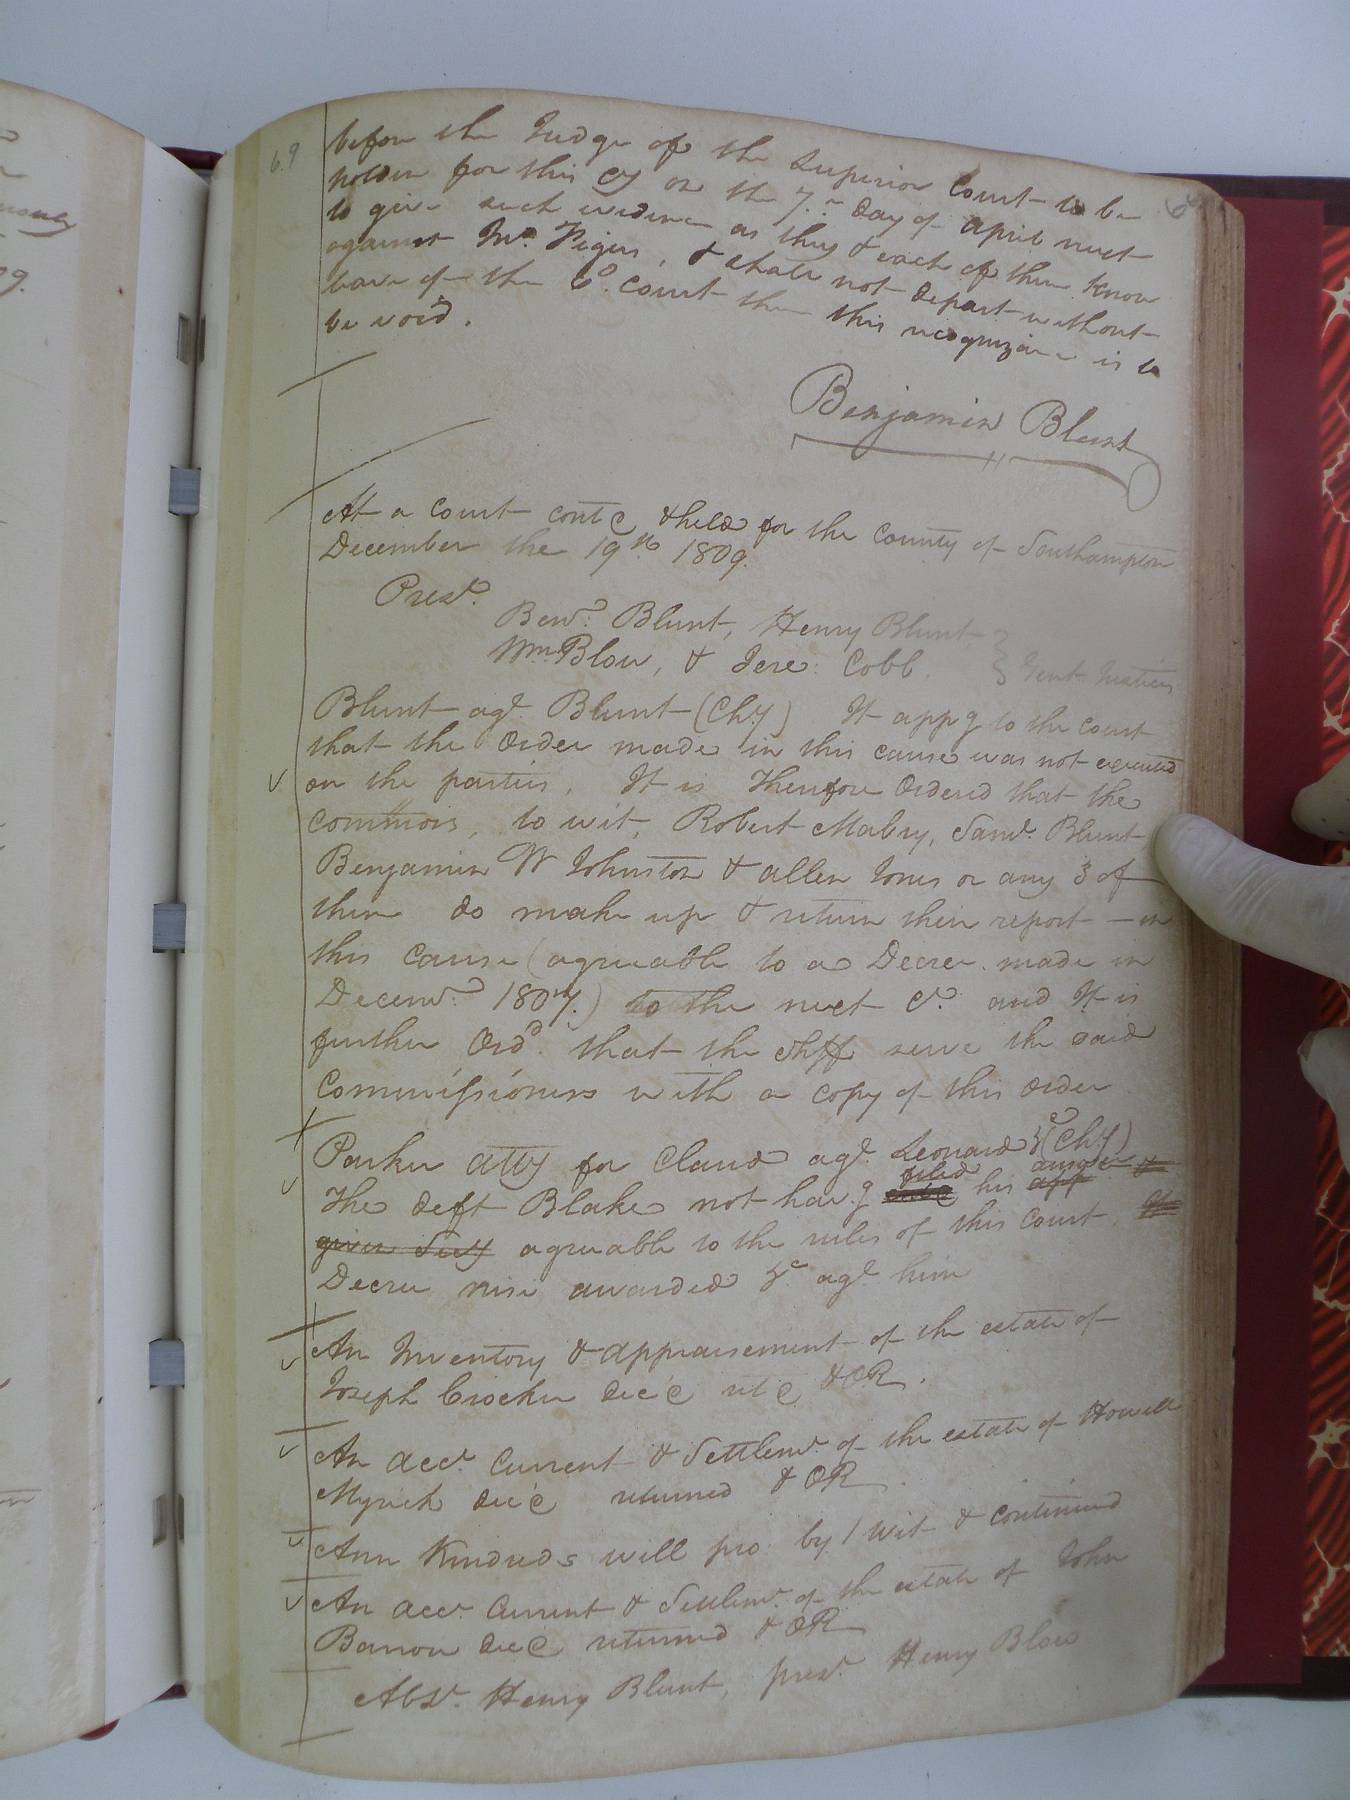 69
before the Judge of the Superior Court to be
holden for this Cty on the 7th day of April next
to give such evidence as they & each of them know
against Mr. Piges, & shall not depart without
leave of the sd. Court then this recognizance is to
be void.
Benjamin Blunt
At a Court contd & held for the County of Southampton
December the 19th 1809.
Prest.
Benn. Blunt, Henry Blunt
Wm. Blow, & Jere: Cobb. } Gent Justices
Blunt agt. Blunt (Chy) It appg to the Court
that the Order made in this cause was not executed
on the parties. It is Therefore Ordered that the
Commors, to wit, Robert Mabry, Saml. Blunt
Benjamin W Johnston & Allen Jones or any 3 of
them do make up & return their report - in
this cause (agreeable to a Decree made in
Decemr. 1807.) to the next Ct. and It is
further Ordd. that the Shff serve the said
Commissioners with a copy of this order
Parker atty for Claud agt. Leonard &c (Chy)
The deft Blake not havg filed his answer
given Secy agreeable to the rules of this Court
Decree nisi awarded &c agt him
An Inventory & appraisement of the estate of
Joseph Crocker decd retd & OR.
An acct. Current & Settlemt. of the estate of Howell
Myrick decd returned & OR.
Ann Kindreds will pro. by 1 wit & continued
An acct. Current & Settlemt. of the estate of John
Barrow decd returned & OR
Abst. Henry Blunt, prest. Henry Blow